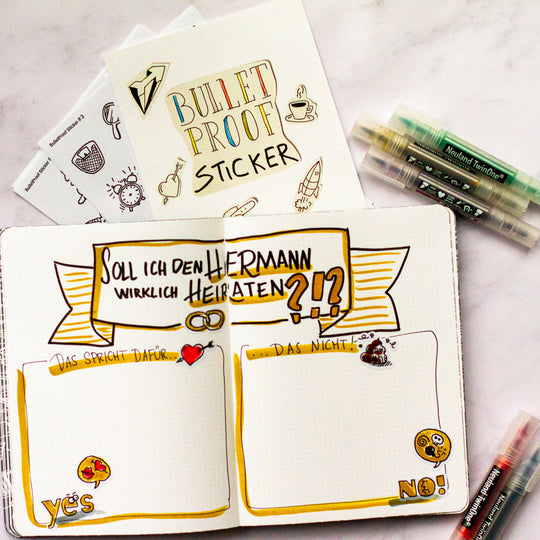 BulletProof Sticker # 3
BulletProof Sticker #
BULLET
PROOF
STICKER
Neuland TwinOne®
Neuland TwinOne®
SOLL ICH DEN HERMANN
WIRKLICH HEIRATEN?!?
DAS SPRICHT DAFÜR..
... DAS NICHT!
yes
NO!
Neuland TwinOne®
Neuland TwinOne®